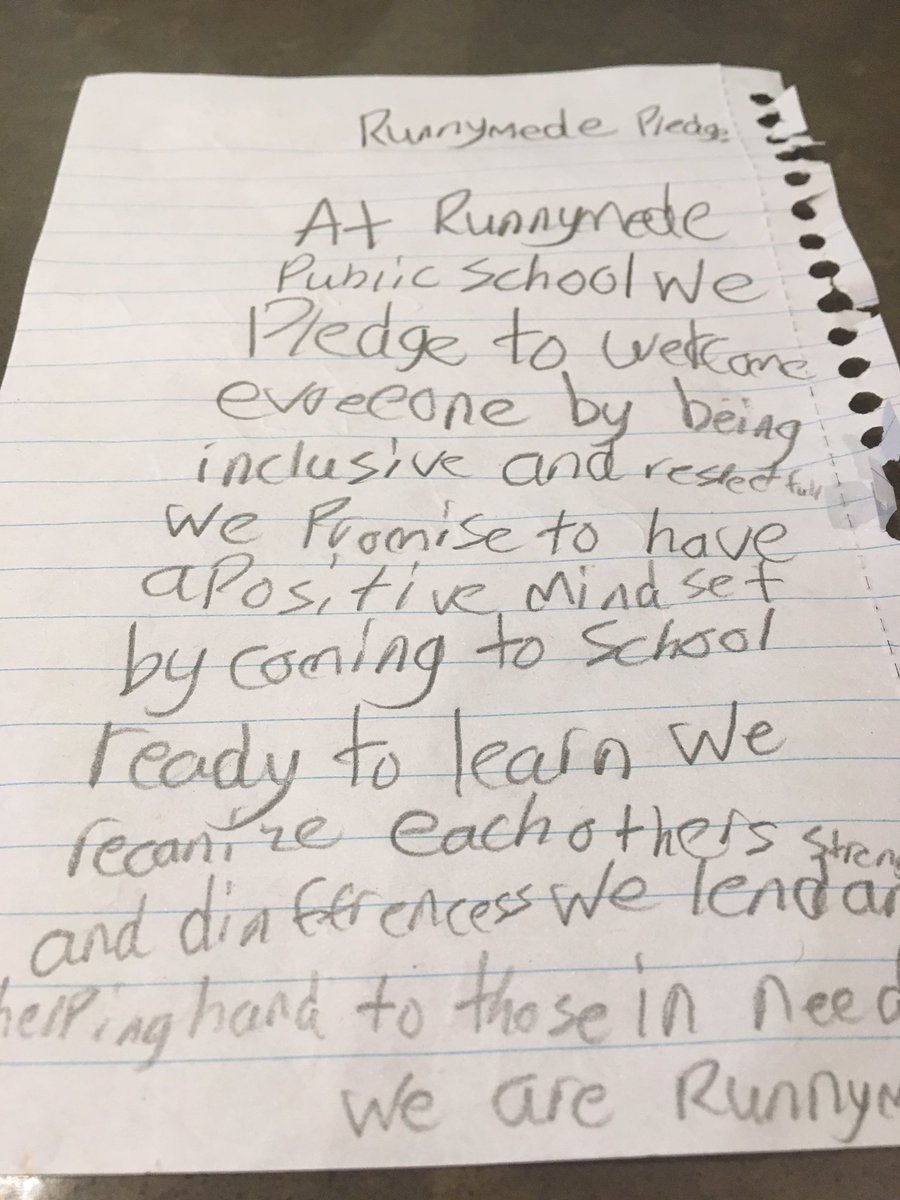 Runnymede Pledge
At Runnymede
Public School We
Pledge to welcome
evreeone by being
inclusive and respectfull
we Promise to have
a Positive mind set
by coming to School
ready to learn we
recanize each others Streng
and dinfferencess we lend a
helping hand to those in need
we are Runnym